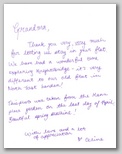 Grandma,
Thank you very, very much
for letting us stay in your flat.
We have had a wonderful time
exploring it's very
different to our old flat in
North East London!
was taken from the
garden on the last day of April.
Beautiful Spring
With love and a lot
of appreciation,